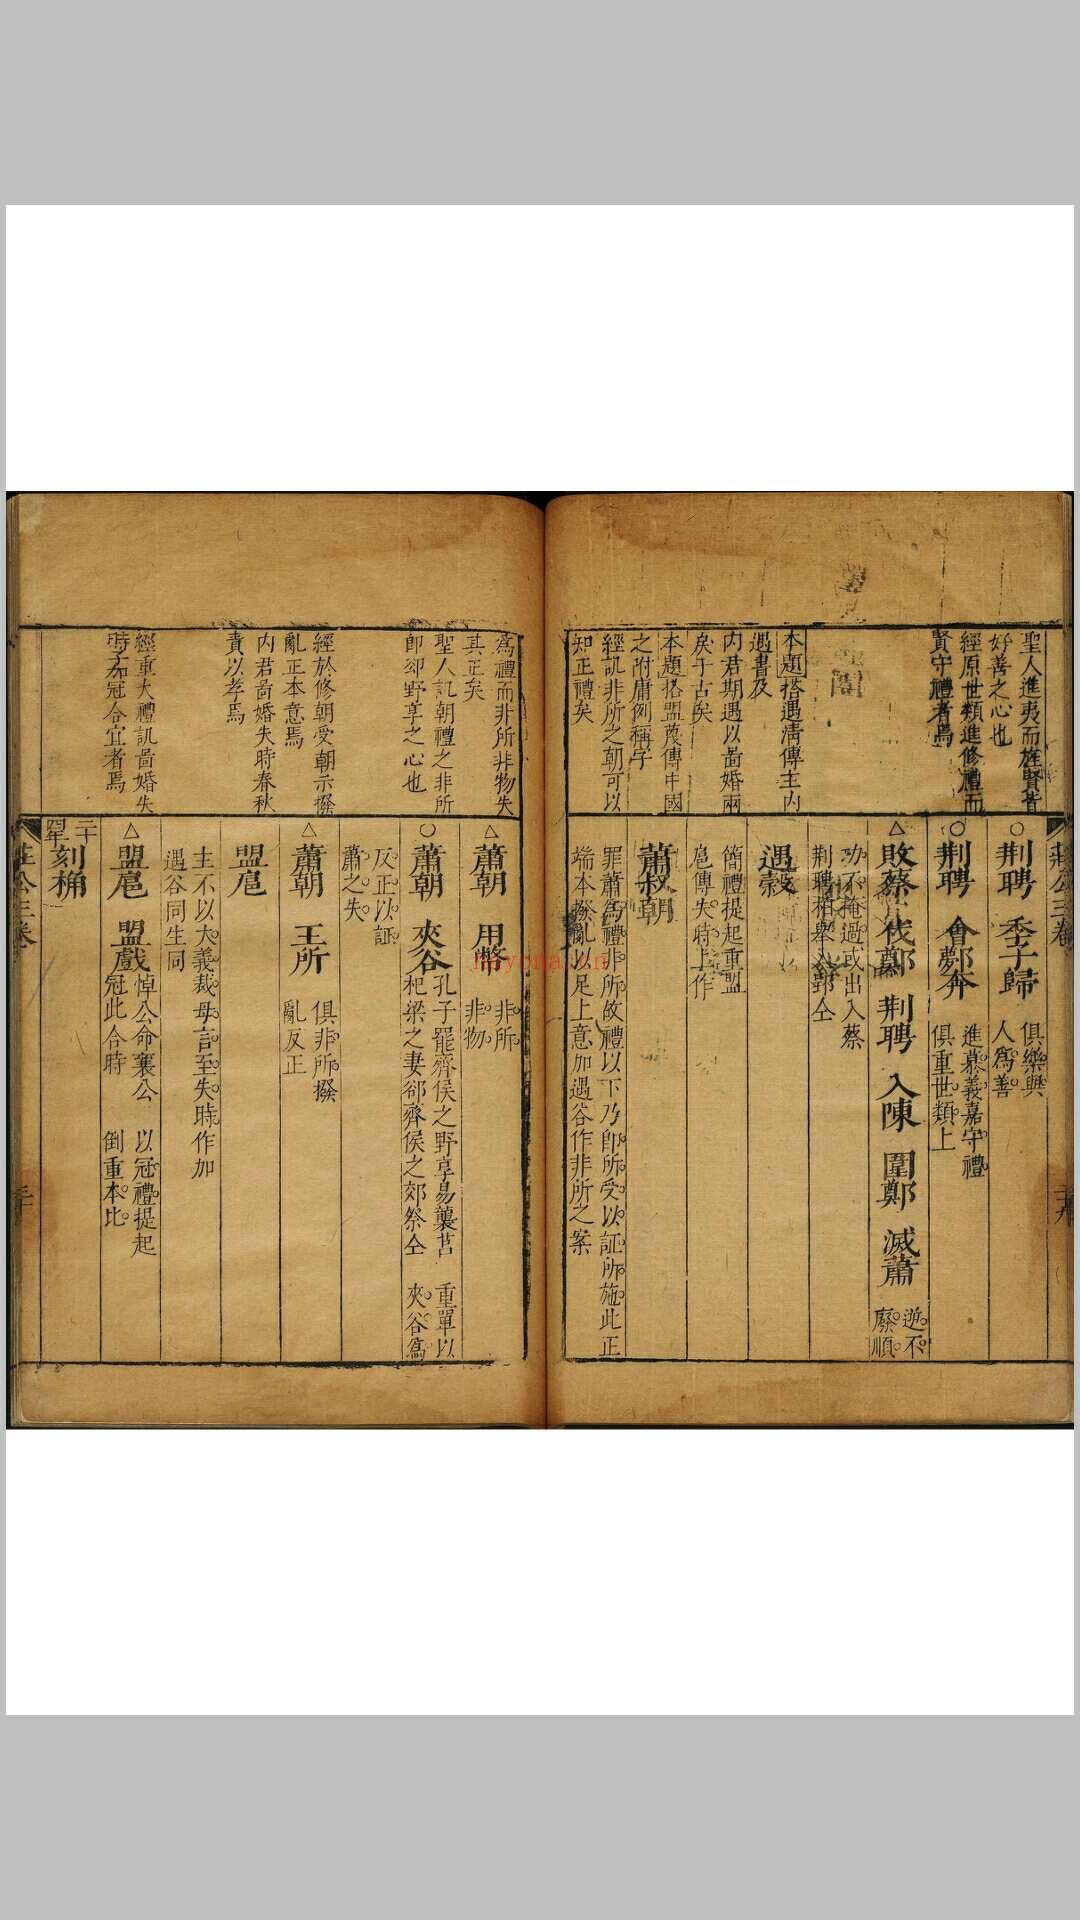 聖人進夷而旌賢皆
好善之心也
經原世類進修禮而
賢守禮者焉
本題搭遇清傳主內
遇書及
內君期遇以啚婚兩
矣于古矣
本題搭盟蔑傳中國
之附庸例稱字
經訊非所之朝可以
知正禮矣
○荆聘 季子歸 俱樂與
人為善
○荆聘 會鄭奔 進慕義嘉守禮
俱重世類上
△敗蔡 伐鄭 荆聘 入陳 圍鄭 滅蕭 逆不
廢順
功不掩過或出入蔡
荆聘相舉入鄀仝
遇穀
簡禮提起重盟
扈傳失時上作
蕭叔朝
罪蕭為禮非所故禮以下乃即所受以証所施此正
端本撥亂以足上意加遇谷作非所之案
為禮而非所非物失
其正矣
聖人訊朝禮之非所
即卻野享之心也
經於修朝受朝示撥
亂正本意焉
內君啚婚失時春秋
責以孝焉
經重大禮訊啚婚失
時予加冠合宜者焉
△蕭朝 用幣 非所
非物
○蕭朝 夾谷 孔子罷齊侯之野享易襲莒 重單以
杞梁之妻郤齊侯之郊祭仝 夾谷為
反正以証
蕭之失
△蕭朝 王所 俱非所撥
亂反正
盟扈
主不以大義裁母言至失時作加
遇谷同生同
△盟扈 盟戲 悼公命襄公 以冠禮提起
冠此合時 倒重本比
二十四年
刻桷
莊公三卷
三十